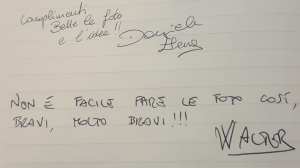 Complimenti
Belle le foto
e l'idea!!
Daniela
Elena
NON È FACILE FARE LE FOTO COSÌ,
BRAVI, MOLTO BRAVI!!!
WALTER